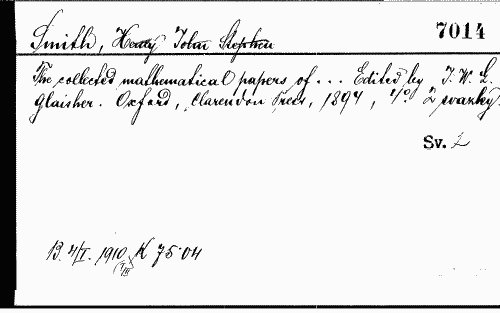 Smith, Henry John Stephen
7014
The collected mathematical papers of ... Edited by J. W. L.
Glaisher. Oxford, Clarendon Press, 1894, 4°. 2 svazky.
Sv. 2
B. 4/I. 1910 K 75·04